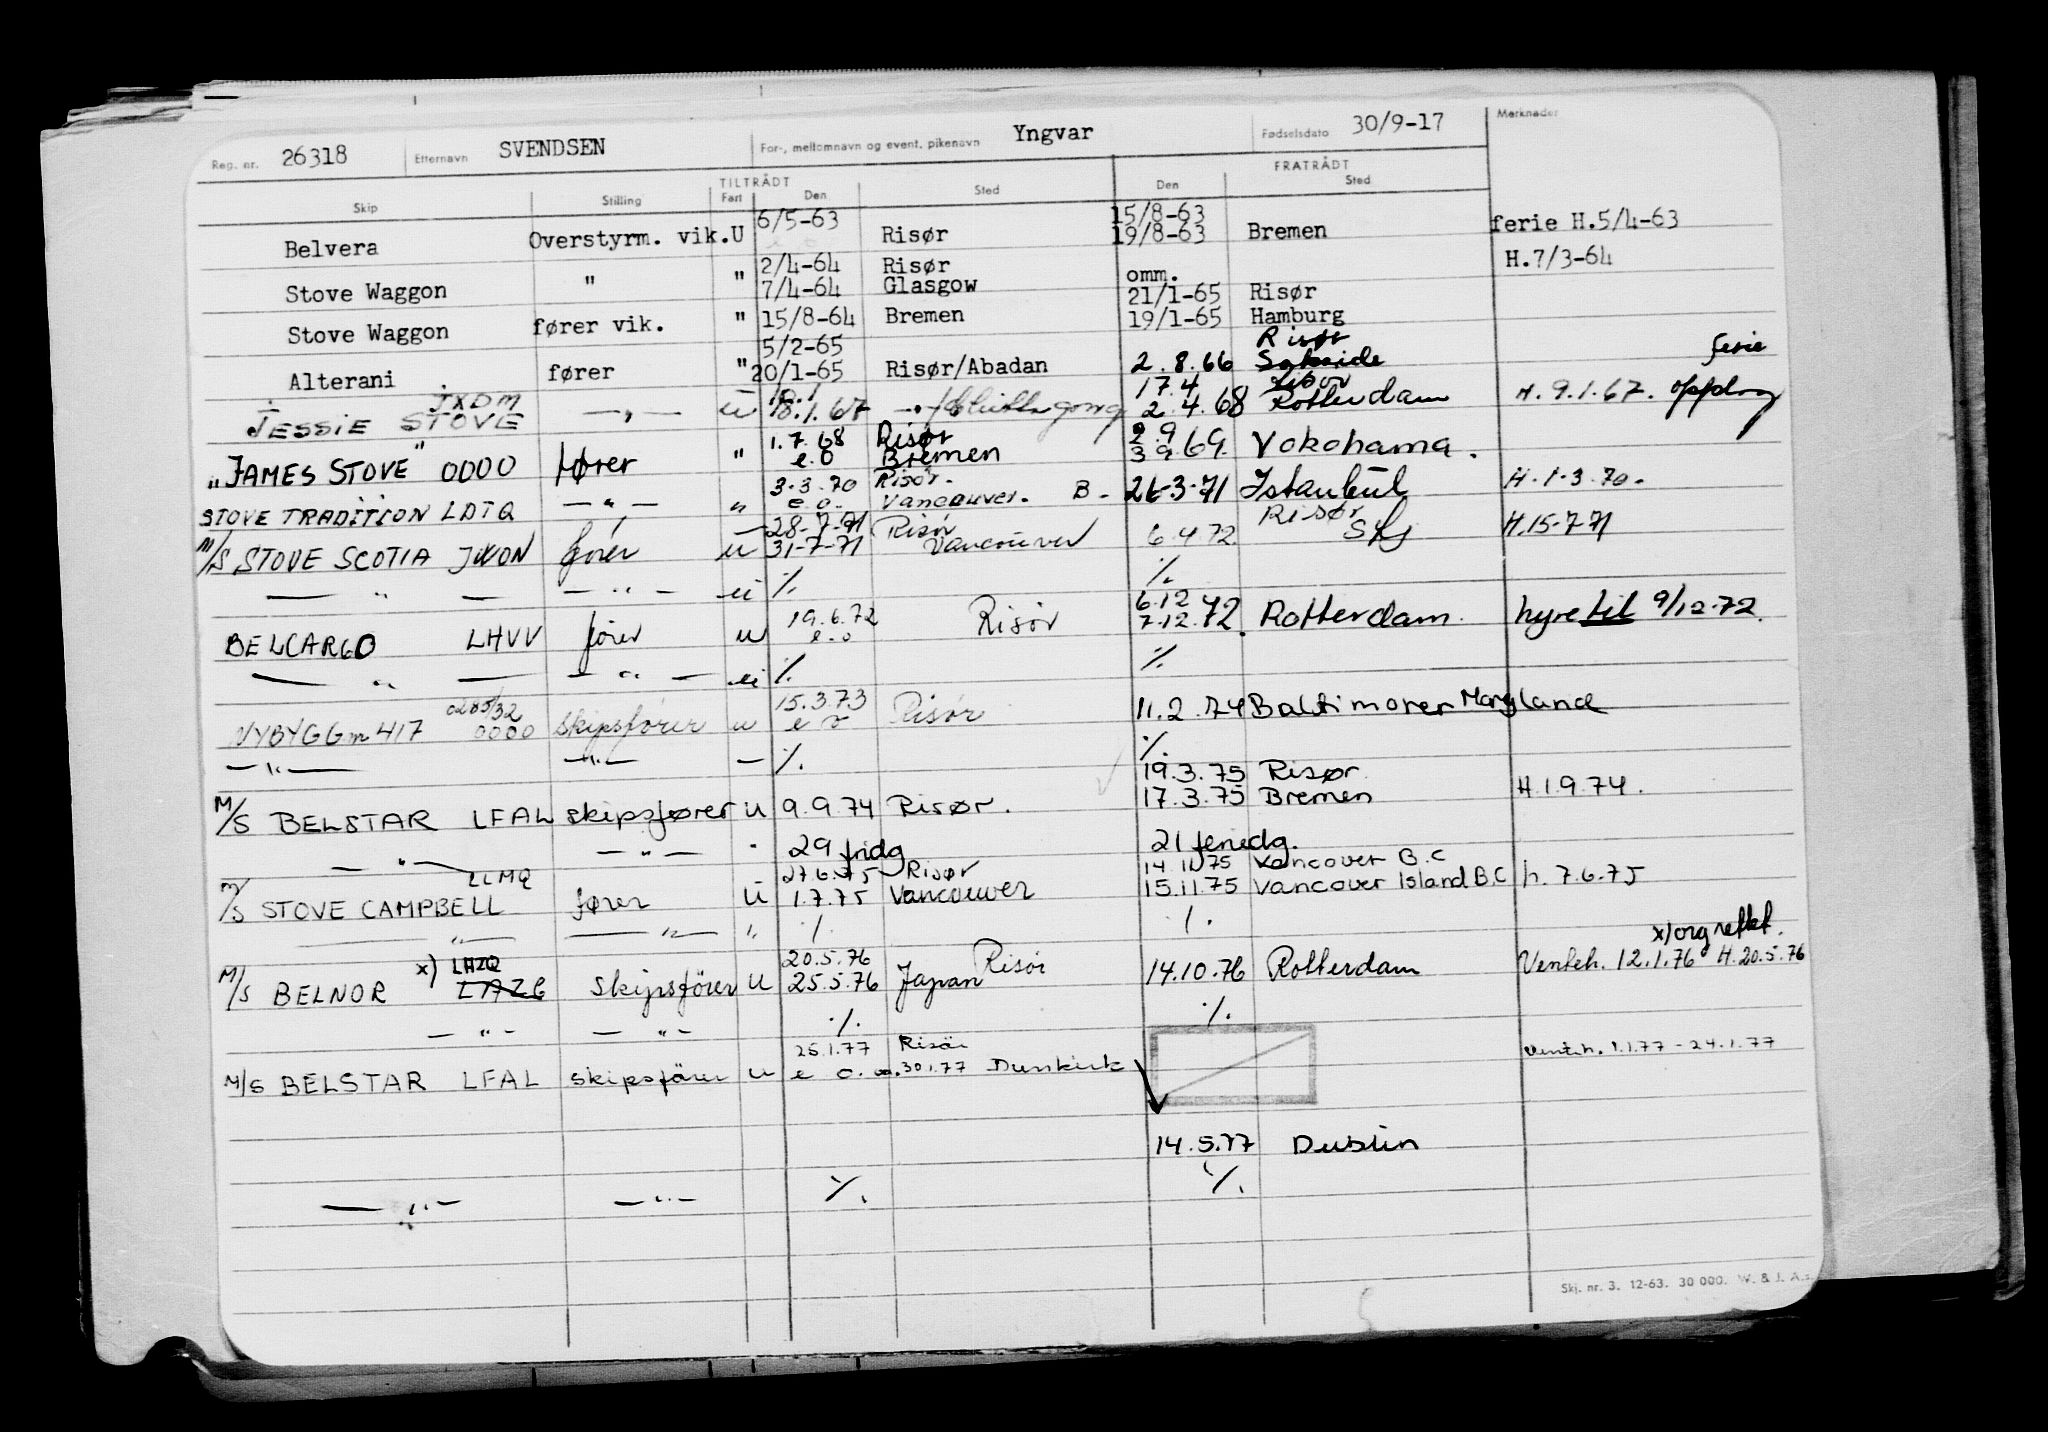 Reg. nr. 26318 Etternavn SVENDSEN For-, mellomnavn og event. pikenavn Yngvar Fødselsdato 30/9-17 Merknader
TILTRÅDT FRATRÅDT
Skip Stilling Fart Den Sted Den Sted
6/5-63 15/8-63
Belvera Overstyrm. vik. U Risør 19/8-63 Bremen ferie H.5/4-63
2/4-64 Risør omm. H.7/3-64
Stove Waggon " " 7/4-64 Glasgow 21/1-65 Risør
Stove Waggon fører vik. " 15/8-64 Bremen 19/1-65 Hamburg
5/2-65 Risør
Alterani fører " 20/1-65 Risør/Abadan 2.8.66 ferie
JXDM 17.4
JESSIE STOVE — " — u 18.1.67 2.4.68 Rotterdam H. 9.1.67. oppdrag
1.7.68 Risør 2.9
"JAMES STOVE" 0000 fører " e.o Bremen 3 9 69. Yokohama.
3.3.70 Risør.
STOVE TRADITION LDTQ — " — " e o. Vancouver. B - 26-3-71 Istanbul H. 1-3.70.
28-7-71 Risør Risør
M/S STOVE SCOTIA JWON fører u 31-7-71 Vancouver 6.4 72 Skj H.15-7-71
— " — — " — u ./. ./.
19.6.72 6.12
BELCARGO LHVV fører u e.o Risör 7.12.72. Rotterdam. hyre til 9/12-72.
— " — — " — u ./. ./.
0285/32 15.3.73
NYBYGG nr 417 0000 skipsfører u e o Risör 11.2.74 Baltimorer Maryland
— " — — " — — ./. ./.
19.3.75 Risør
M/S BELSTAR LFAL skipsfører u 9.9.74 Risør. 17.3.75 Bremen H.1.9.74.
— " — — " — " 29 fridg 21 feriedg.
LLMQ 27.6.75 Risør 14.11.75 Vancover B.C
M/S STOVE CAMPBELL fører u 1.7.75 Vancouver 15.11.75 Vancover Island B.C h. 7.6.75
— " — — " — " ./. ./.
x) org rettet.
x) LHZQ 20.5.76 Risör
M/S BELNOR skipsfører u 25.5.76 Japan 14.10.76 Rotterdam Venteh. 12.1.76 H.20.5.76
— " — — " — ./. ./.
25.1.77 Risör
M/S BELSTAR LFAL skipsfører u e o. 30.1.77 Dunkirk Venteh. 1.1.77 - 24.1.77
14.5.77 Dublin
— " — — " — ./. ./.
Skj. nr. 3. 12-63. 30 000. W. & J. A.s